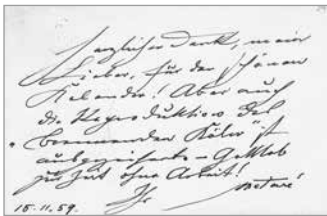 Herzlichen Dank, mein
Lieber, für den schönen
Kalender! Aber auch
die Reproduktion des
"brennenden Kölns" ist
ausgezeichnet – Gottlob
zur Zeit ohne Arbeit!
Ihr
15.11.59.